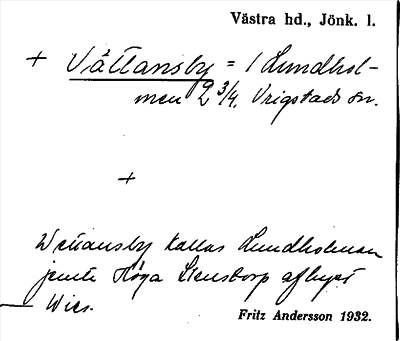 Västra hd., Jönk. l.
+ Vättansby = 1 Lundhol-
men 2 3/4. Vrigstads sn.
+
Wettansby kallas Lundholman
jemte Höga Stenstorp afhyst
Wies.
Fritz Andersson 1932.